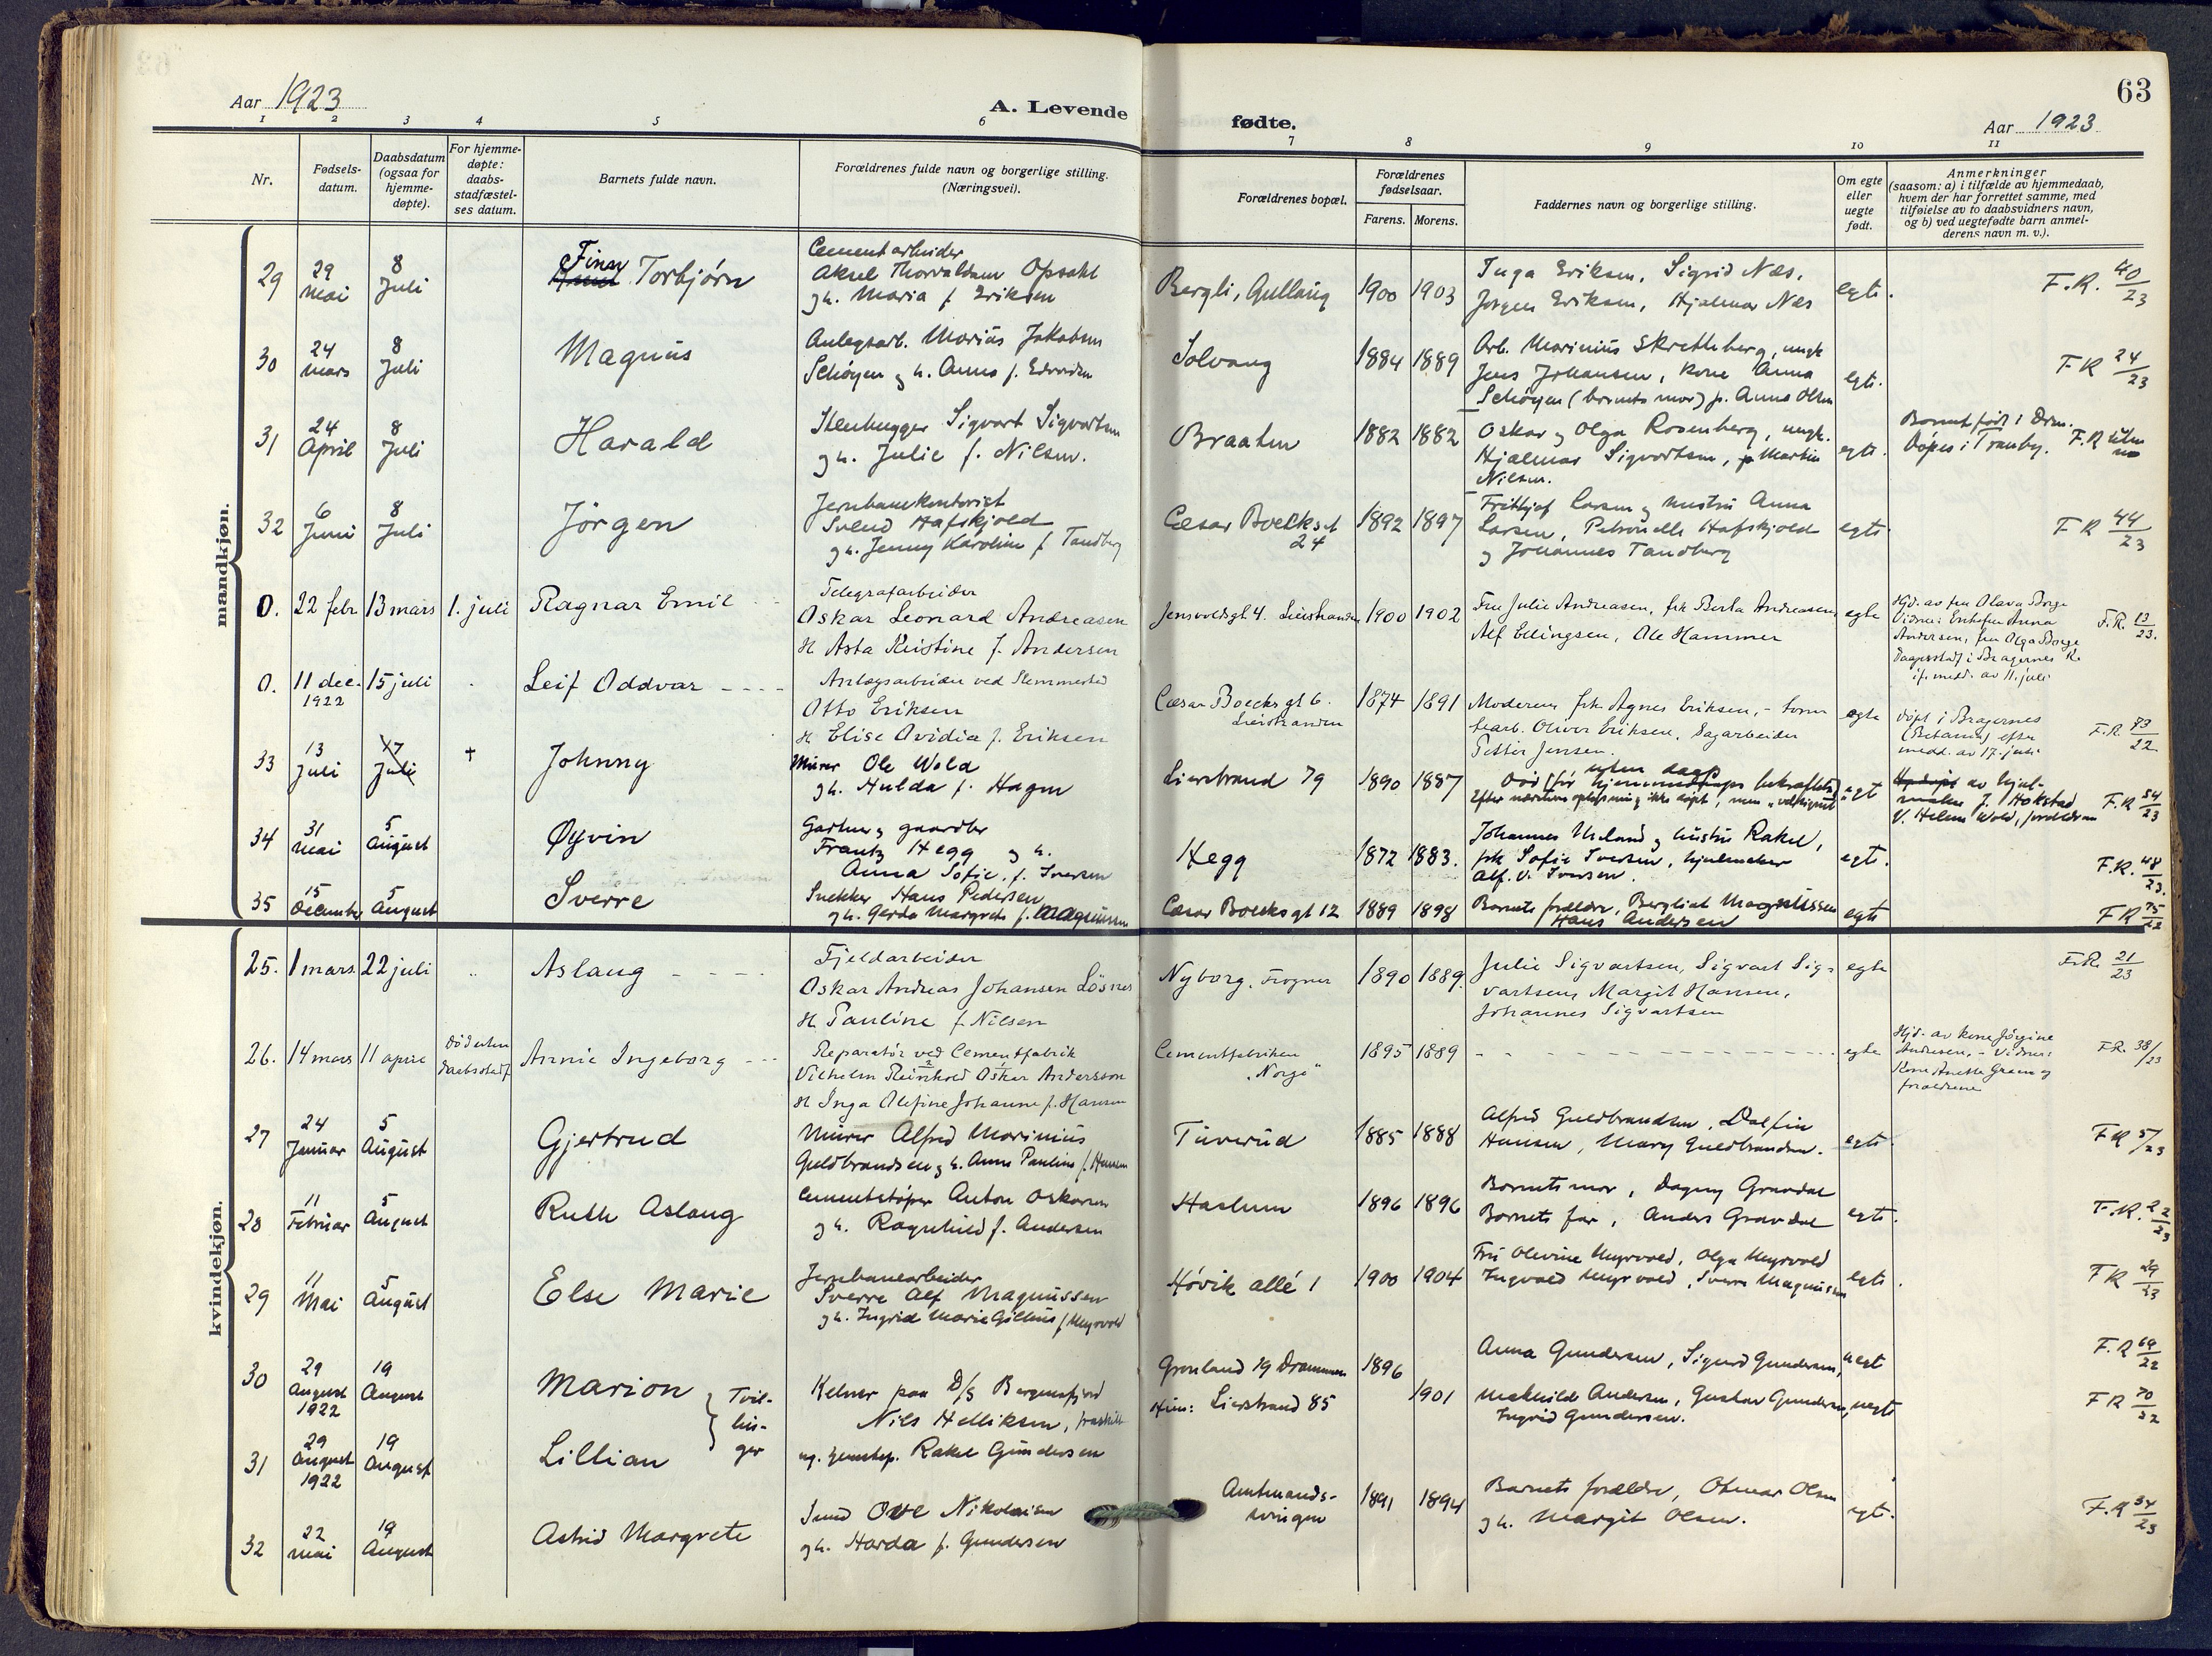 63
Aar 1923
A. Levende
fødte.
Aar 1923
1 2 3 4 5 6 7 8 9 10 11
Nr.
Fødsels-
datum.
Daabsdatum
(ogsaa for
hjemme-
døpte).
For hjemme-
døpte:
daabs-
stadfæstel-
ses datum.
Barnets fulde navn.
Forældrenes fulde navn og borgerlige stilling.
(Næringsvei).
Forældrenes bopæl.
Forældrenes
fødselsaar.
Farens. Morens.
Faddernes navn og borgerlige stilling.
Om egte
eller
uegte
født.
Anmerkninger
(saasom: a) i tilfælde av hjemmedaab,
hvem der har forrettet samme, med
tilføielse av to daabsvidners navn,
og b) ved uegtefødte barn anmel-
derens navn m. v.).
mandkjøn.
29
29 Mai
8 Juli
Finn Torbjørn
Cementarbeider
Aksel Thorvaldsen Opsahl
og h. Maria f. Eriksen
Bergli, Gullaug
1900 1903
Inga Eriksen, Sigrid Næs,
Jørgen Eriksen, Hjalmar Næs
egte.
F.R. 40/23
30
24 Mars
8 Juli
Magnus
Anlegsarb. Marius Jakobsen
Schøyen og h. Anna f. Edvardsen
Solvang
1884 1889
Arb. Marinius Skretteberg, ungk.
Jens Johansen, kone Anna
Schøyen (barnets mor) p. Anna Olsen
egte.
F R 24/23
31
24 April
8 Juli
Harald
Stenhugger Sigvart Sigvartsen
og h. Julie f. Nilsen.
Braaten
1882 1882
Oskar og Olga Rosenberg, ungk.
Hjalmar Sigvartsen, p Martin
Nilsen.
egte.
Barnet født i Drm.
Døpes i Tranby. F.R
32
6 Juni
8 Juli
Jörgen
Jernbanekontorist
Svend Hafskjold
og h. Jenny Karoline f. Tandberg
Cæsar Boecksgt
24
1892 1897
Frithjof Larsen og hustru Anna
Larsen, Petronelle Hafskjold
og Johannes Tandberg
egte
F R 44/23
0.
22 febr
13 mars
1. juli
Ragnar Emil
Telegrafarbeider
Oskar Leonard Andreasen
H Asta Kristine f. Andersen
Jensvoldsgt 4. Lierstranden
1900 1902
Fru Julie Andreasen, frk Berta Andreasen,
Alf Ellingsen, Ole Hammer
egte
Hjd. av fru Olava Borge
Vidner: Enkefru Anna
Andersen, fru Olga Borge
Daapsstadf i Bragernes K.
if. medd. av 11. juli
F.R. 13/23.
0.
11 dec. 1922
15 juli
Leif Oddvar
Anlægsarbeider ved Slemmestad
Otto Eriksen
H Elise Ovidia f. Eriksen
Cæsar Boecks gt 6.
Lierstranden
1874 1891
Moderen, frk Agnes Eriksen, - tom
tearb. Oliver Eriksen, Sagarbeider
Petter Jensen.
egte
døpt i Bragernes
(Betania) efter
medd. av 17. juli
F.R 93/22
33
13 Juli
17 Juli
†
Johnny
Murer Ole Wold
og h. Hulda f. Hagen
Lierstrand 79
1890 1887
uten daab
egt
av hjul-
J. Hokstad
V. Helene Wold, forældrene
F.R 54/23
34
31 Mai
5 August
Øyvin
Gartner og gaardbr
Frantz Hegg og h.
Anna Sofie, f. Iversen
Hegg
1872 1883.
Johannes Meland og hustru Rakel,
frk Sofie Iversen, hjulmaker
Alf. V. Iversen.
egt.
F.R. 48/23.
35
15 December
5 August
Sverre
Snekker Hans Pedersen
og h. Gerda Margrete f. Magnussen
Cæsar Boecks gt 12
1889 1898
Barnets forældre, Bergliot Magnussen
Hans Andersen
egte
F R 75/22
kvindekjøn.
25.
1 mars
22 juli
Aslaug
Fjeldarbeider
Oskar Andreas Johansen Løsnes
H Pauline f. Nilsen
Nyborg, Frogner
1890 1889.
Julie Sigvartsen, Sigvart Sig-
vartsen, Margit Hansen,
Johannes Sigvartsen
egte
F.R. 21/23
26.
14 mars
11 april
død uten
daabsstadf
Annie Ingeborg
Reparatør ved Cementfabrik
Vilhelm Reinhold Oskar Andersson
H Inga Olefine Johanne f. Hansen
Cementfabriken
„Norge“
1895 1889
egte
Hjd. av kone Jørgine
Andresen, - Vidner:
Kone Anette Gram og
forældrene
F.R. 38/23
27
24 Januar
5 August
Gjertrud
Murer Alfred Marinius
Guldbrandsen og h. Anna Pauline f. Hansen
Tuverud
1885 1888
Alfred Guldbrandsen, Dolfin
Hansen, Mary Guldbrandsen.
egte.
F R 5/23
28
11 Februar
5 August
Ruth Aslaug
Cementstøper Anton Oskarsen
og h. Ragnhild f. Andersen
Haslum
1896 1896
Barnets mor, Dagny Gravdal
Barnets far, Anders Gravdal
egte.
F.R. 22/23
29
11 Mai
5 August
Else Marie
Jernbanearbeider
Sverre Alf Magnussen
og h. Ingrid Marie f. Myrvold
Høvik allé 1
1900 1904
Fru Olevine Myrvold, Olga Myrvold
Ingvald Myrvold, Sverre Magnussen
egte.
F R 29/23
30
29 August 1922
19 August
Marion
Tvil-
lin-
ger
Kelner paa D/S Bergensfjord
Nils Helliksen, fraskilt
Grønland 19 Drammen
1896
Anna Gundersen, Sigurd Gundersen,
uegt
F.R 69/22
31
29 August 1922
19 August
Lillian
ug. Rakel Gundersen
Hun: Lierstrand 85
1901
Mathilde Andersen, Gustav Gundersen,
Ingrid Gundersen.
uegte
F R 70/22
32
22 Mai
19 August
Astrid Margrete
Smed Ove Nikolaisen
og h. Harda f. Gundersen
Amtmands-
svingen
1891 1894
Barnets forældre, Otmar Olsen
og h. Margit Olsen.
egt.
F.R 34/23